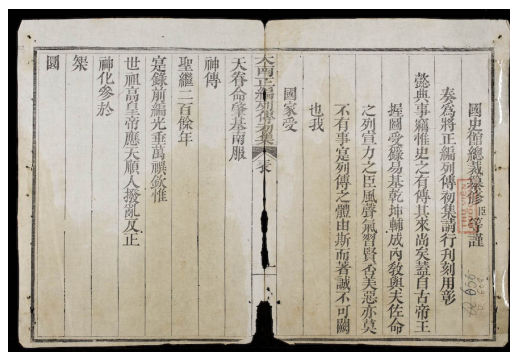 國史館總裁纂修臣等謹
奏為將正編列傳初集請行刊刻用彰
懿典事竊惟史之有傳其來尚矣蓋自古帝王
握圖受籙易基乾坤輔成內教與夫佐命
之列宣力之臣風聲氣習賢否美惡亦莫
不有事寔列傳之體由斯而著誠不可闕
也我
國家受
大南正編列傳初集 表
天眷命肇基南服
神傳
聖繼二百餘年
寔錄前編光垂萬禩欽惟
世祖高皇帝應天順人撥亂反正
神化參於